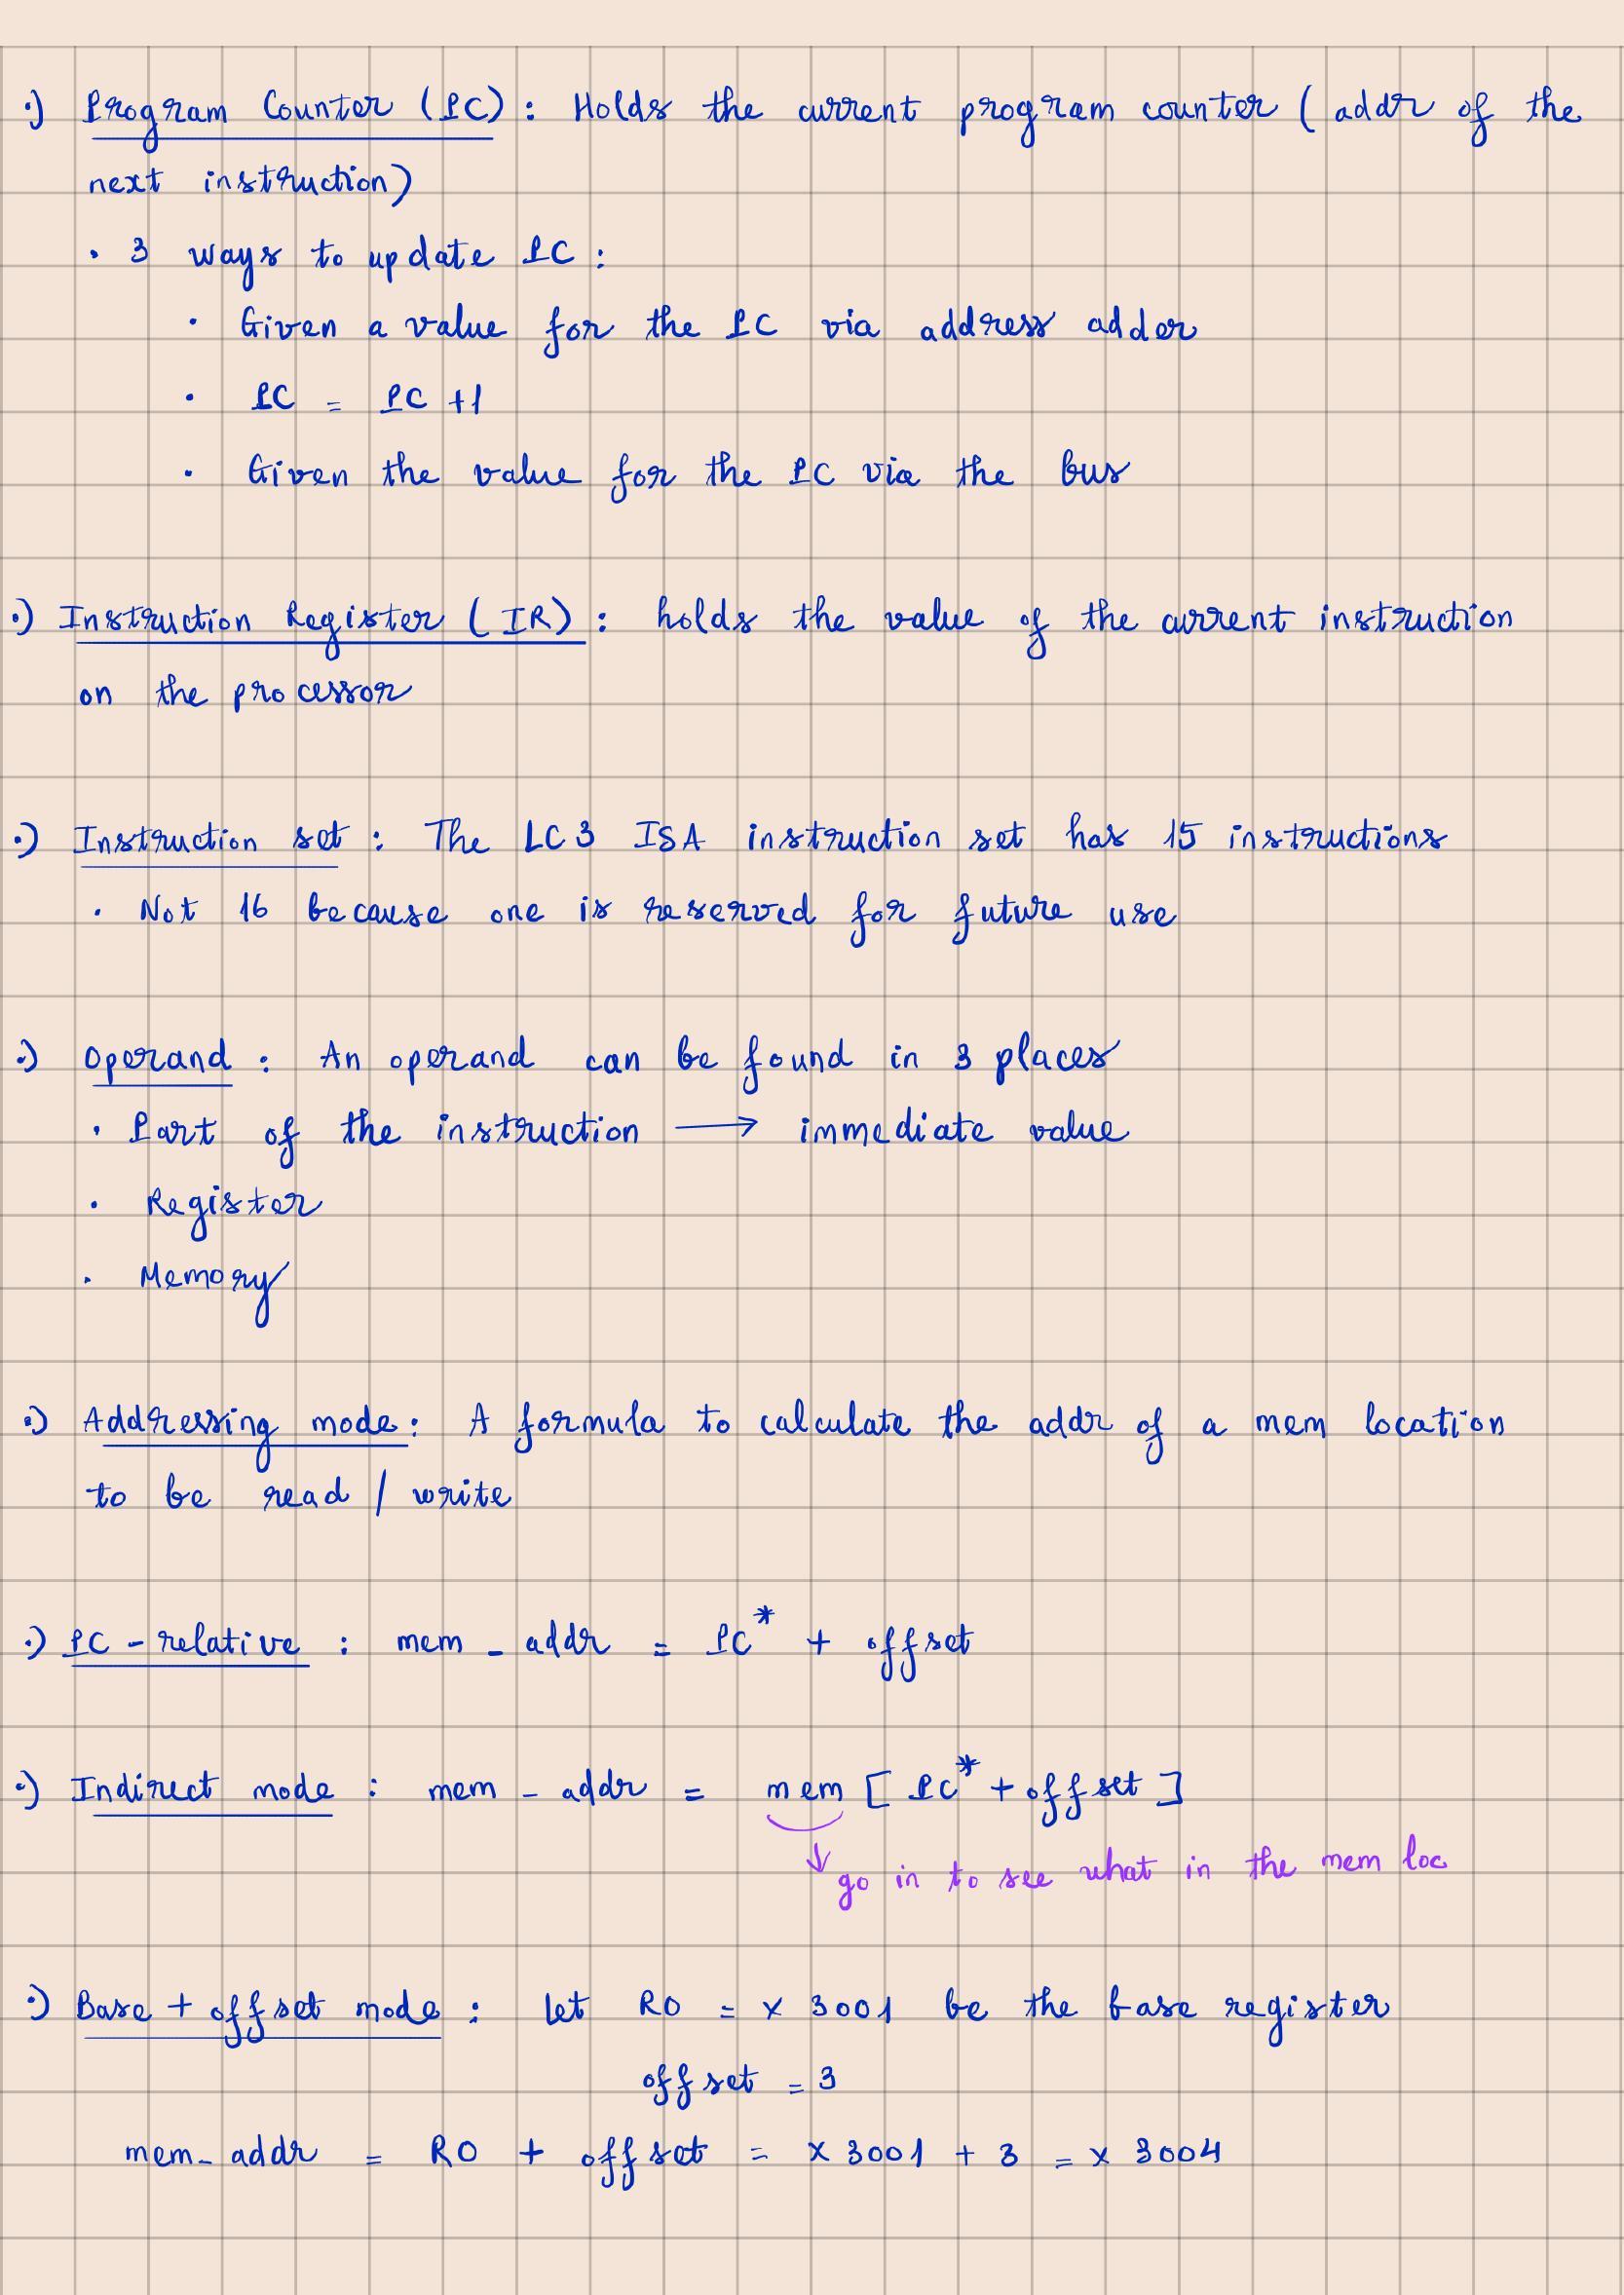 ·) Program Counter (PC) : Holds the current program counter ( addr of the
next instruction)
· 3 ways to update PC :
· Given a value for the PC via address adder
· PC = PC +1
· Given the value for the PC via the bus
·) Instruction Register ( IR) : holds the value of the current instruction
on the processor
·) Instruction set : The LC3 ISA instruction set has 15 instructions
· Not 16 because one is reserved for future use
·) Operand : An operand can be found in 3 places
· Part of the instruction → immediate value
· Register
· Memory
·) Addressing mode : A formula to calculate the addr of a mem location
to be read / write
·) PC - relative : mem _ addr = PC* + offset
·) Indirect mode : mem _ addr = mem [ PC* + offset ]
↓ go in to see what in the mem loc
·) Base + offset mode : let R0 = x 3001 be the base register
offset = 3
mem_ addr = R0 + offset = x 3001 + 3 = x 3004